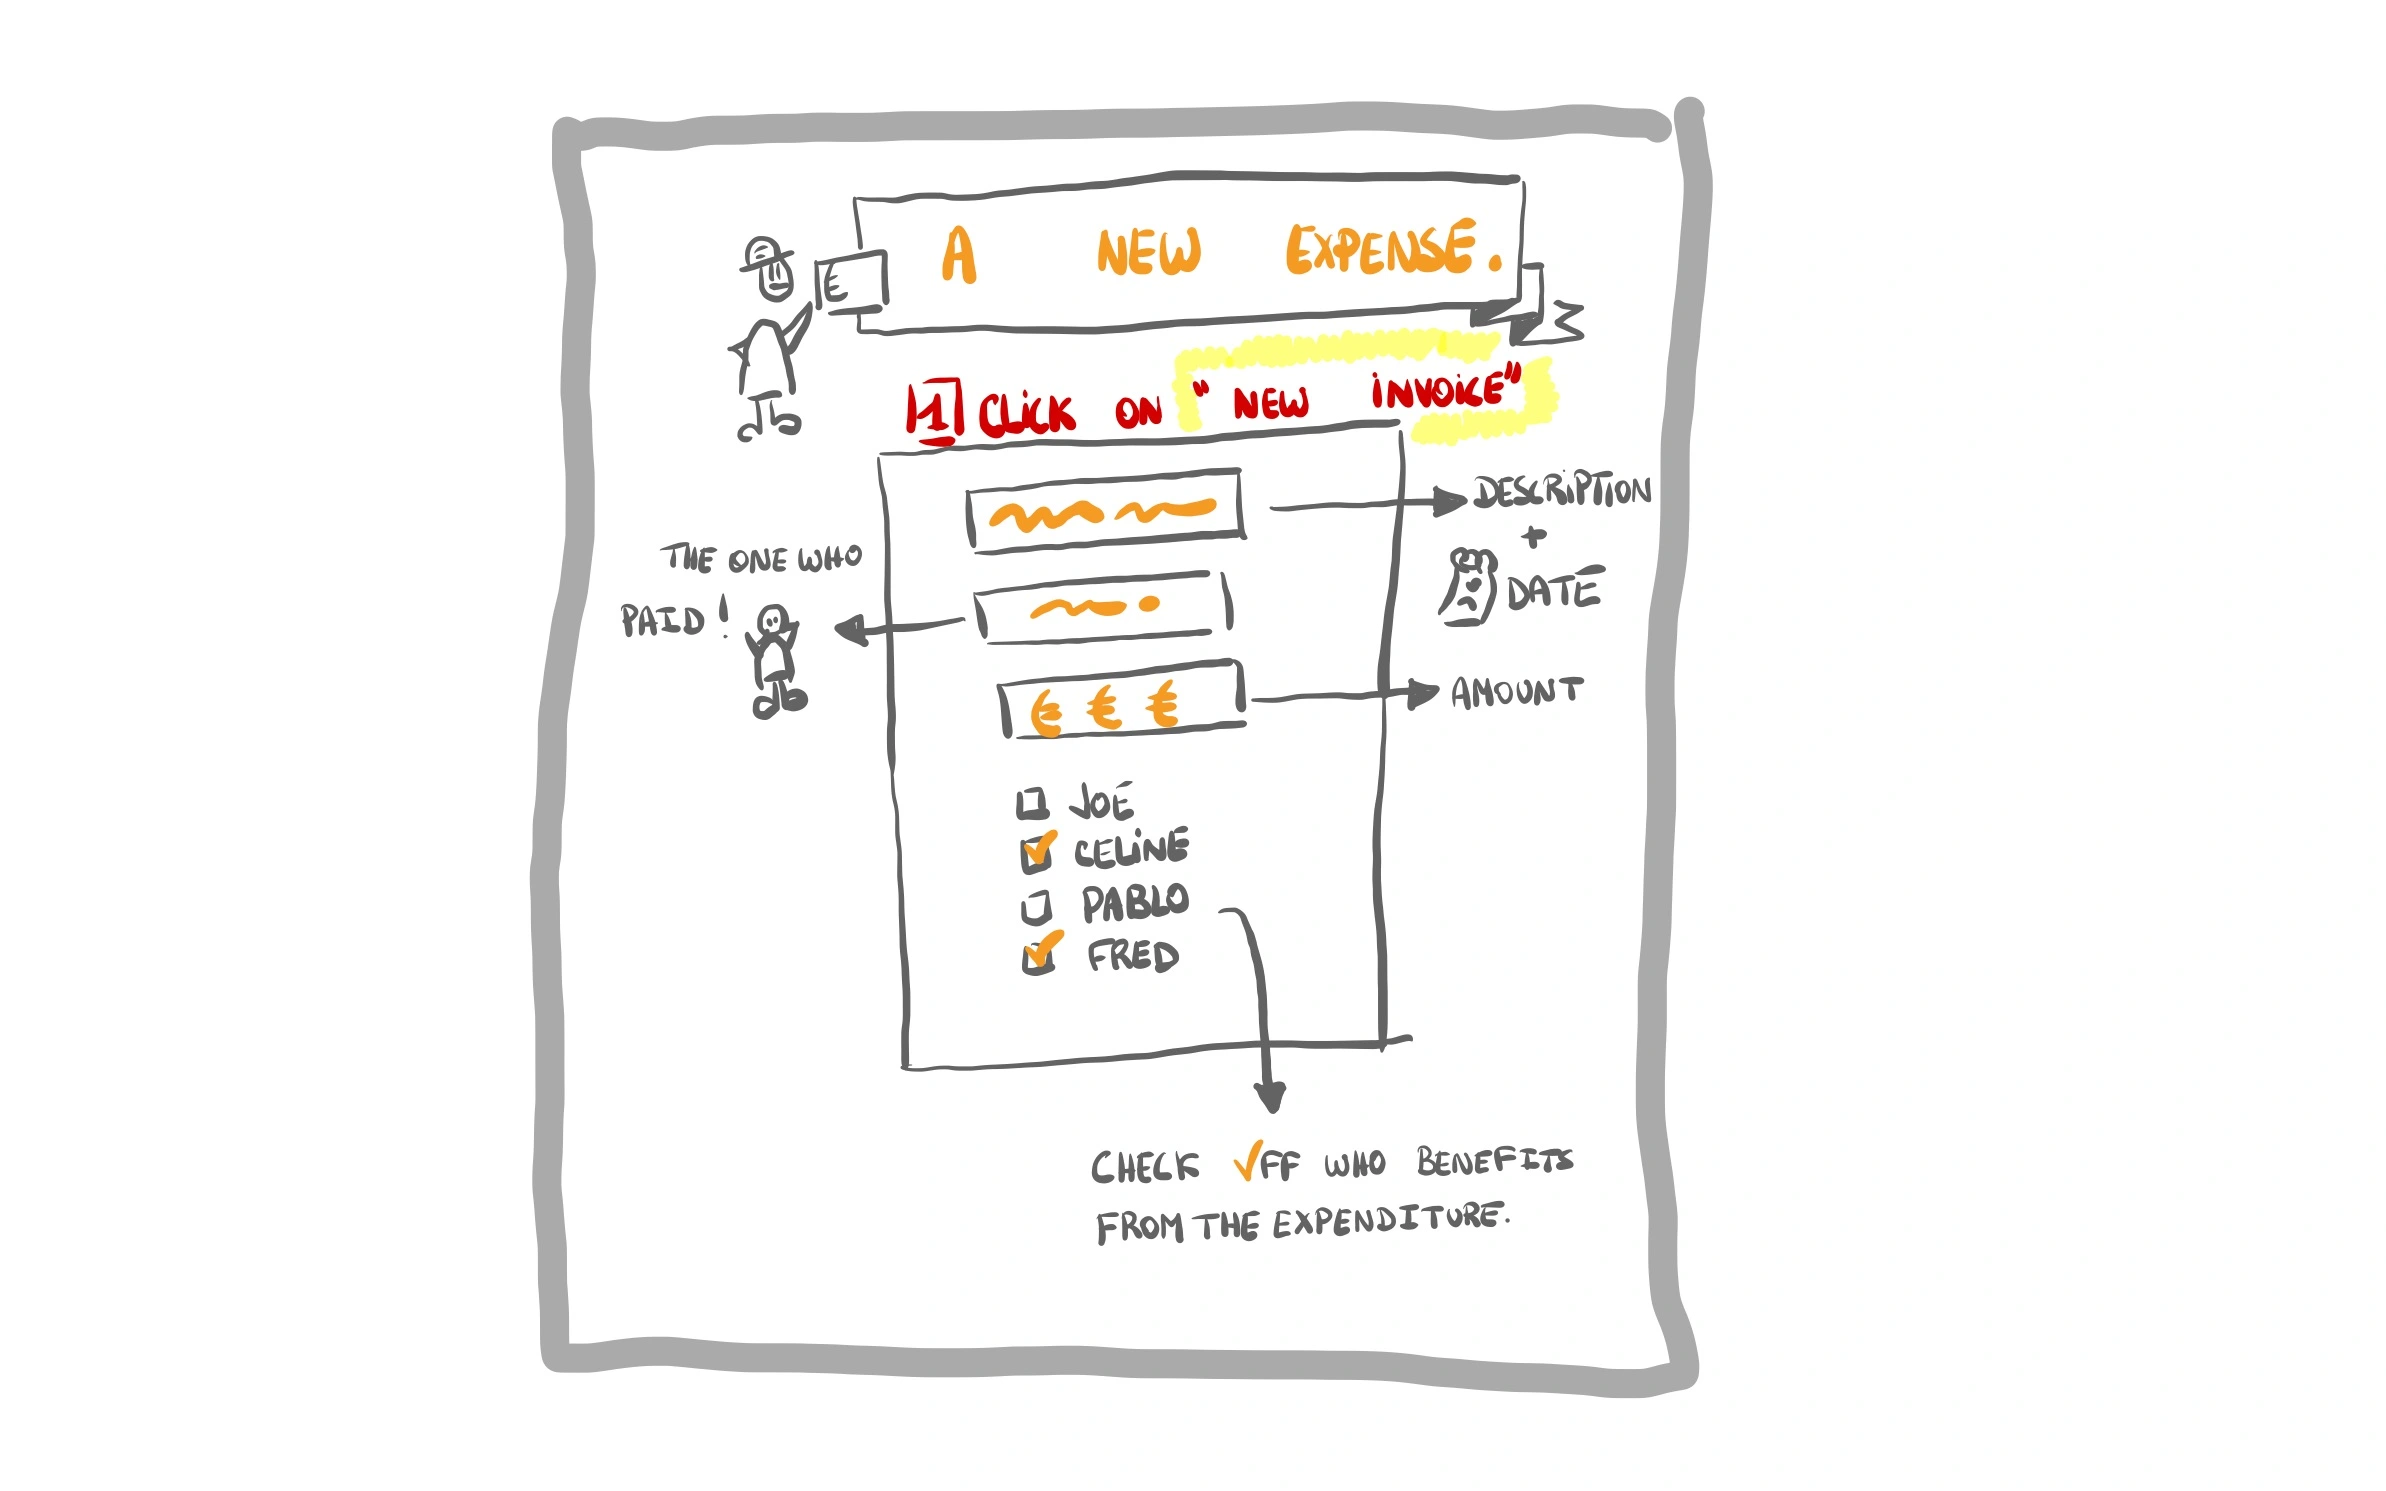 A NEW EXPENSE.
E
1 CLICK ON "NEW INVOICE"
DESCRIPTION
+
DATE
THE ONE WHO
PAID!
€ € €
AMOUNT
JOE
CELINE
PABLO
FRED
CHECK ✓FF WHO BENEFITS
FROM THE EXPENDITURE.